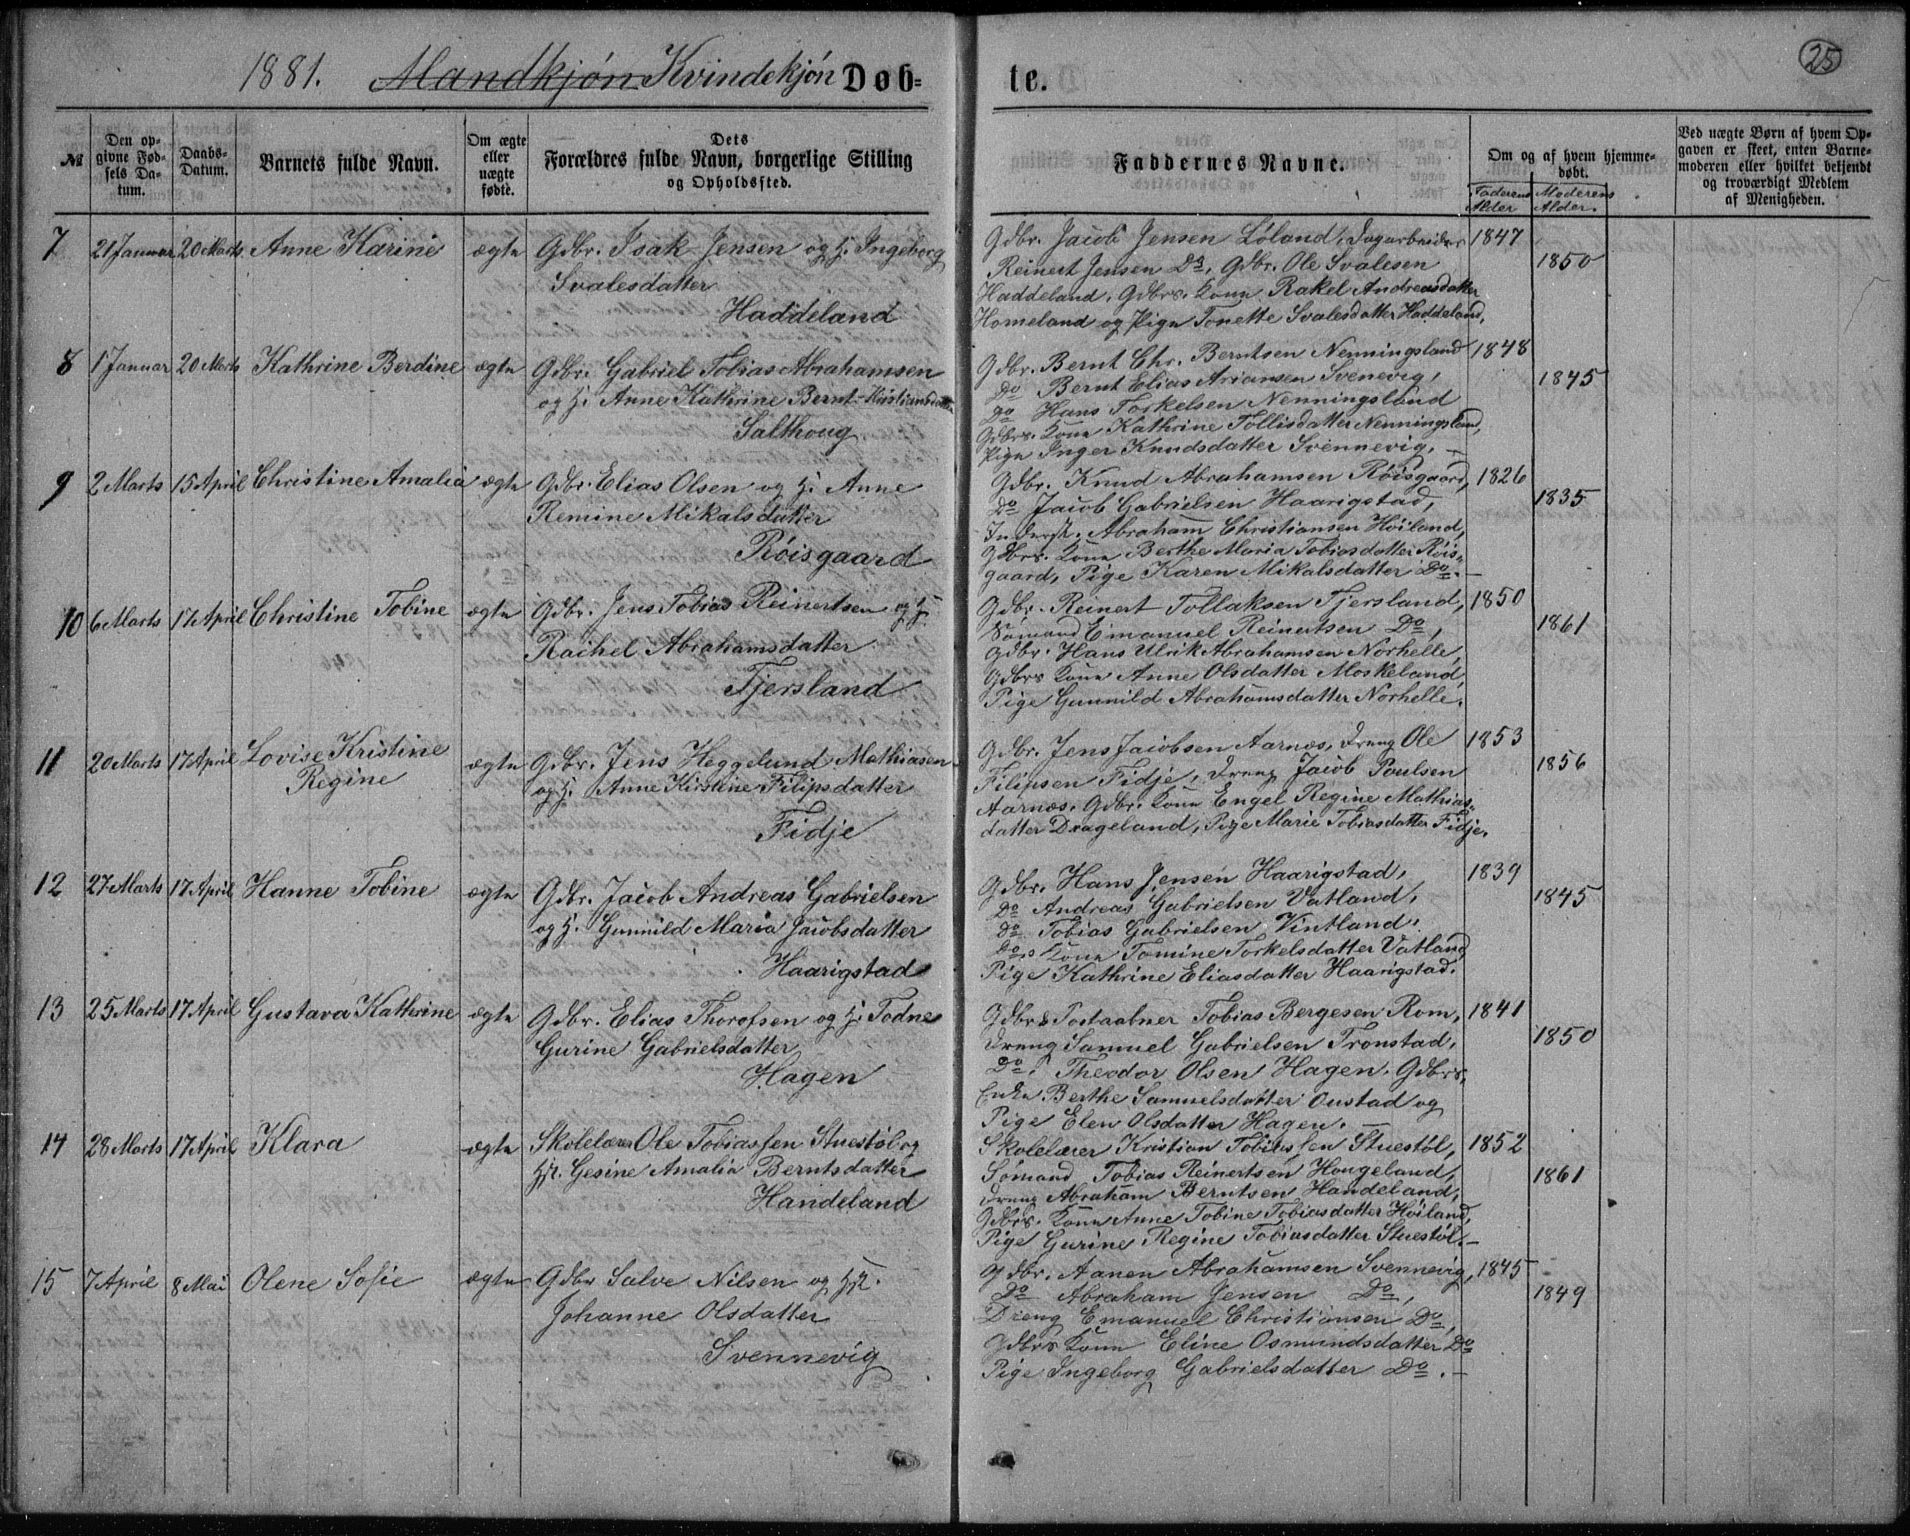 25
1881. Mandkjøn Kvindekjøn Døb-
te.
№
Den op-
givne Fød-
sels Da-
tum.
Daabs-
Datum.
Barnets fulde Navn.
Om ægte
eller
uægte
fødte.
Dets
Forældres fulde Navn, borgerlige Stilling
og Opholdssted.
Faddernes Navne.
Om og af hvem hjemme-
døbt.
Faderens
Alder
Moderens
Alder.
Ved uægte Børn af hvem Op-
gaven er skeet, enten Barne-
moderen eller hvilket betjendt
og troværdigt Medlem
af Menigheden.
7 21 Januar 20 Marts Anne Karine ægte
Gdbr. Isak Jensen og H. Ingeborg
Svalesdatter
Haddeland
Gdbr. Jacob Jensen Löland, Dagarbeider
Reinert Jensen Do, Gdbr. Ole Svalesen
Haddeland, Gdbrs. Kone Rakel Andreasdatter
Homeland og Pige Tonette Svalesdatter Haddeland,
1847
1850
8 1 Januar 20 Marts Kathrine Berdine ægte
Gdbr. Gabriel Tobias Abrahamsen
og H. Anne Kathrine Bernt-Kristiansdatter
Salthoug
Gdbr. Bernt Chr. Berntsen Nenningsland
Do Bernt Elias Ariansen Svenevig,
Do Hans Torkelsen Nenningsland
Gdbrs. Kone Kathrine Tollisdatter Nenningsland,
Pige Inger Knudsdatter Svennevig. —
1848
1845
9 2 Marts 15 April Christine Amalia ægte
Gdbr. Elias Olsen og H. Anne
Remine Mikalsdatter
Röisgaard
Gdbr. Knud Abrahamsen Röisgaard,
Do Jacob Gabrielsen Haarigstad,
Inderst. Abraham Christiansen Höiland,
Gdbrs. Kone Berthe Maria Tobiasdatter Röis-
gaard, Pige Karen Mikalsdatter Do. —
1826
1835
10 6 Marts 17 April Christine Tobine ægte
Gdbr. Jens Tobias Reinertsen og H.
Rachel Abrahamsdatter
Fjersland
Gdbr. Reinert Tollaksen Fjersland,
Sömand Emanuel Reinertsen Do,
Gdbr. Hans Ulrik Abrahamsen Norhelle,
Gdbrs Kone Anne Olsdatter Moskeland,
Pige Gunnild Abrahamsdatter Norhelle.
1850
1861
11 20 Marts 17 April Lovise Kristine
Regine
ægte
Gdbr. Jens Heggelund Mathiasen
og H. Anne Kirstine Filipsdatter
Fidje
Gdbr. Jens Jacobsen Aarnæs, Dreng Ole
Filipsen Fidje, Dreng Jacob Poulsen
Aarnæs. Gdbr. Kone Engel Regine Mathias-
datter Drageland, Pige Marie Tobiasdatter Fidje.
1853
1856
12 27 Marts 17 April Hanne Tobine ægte
Gdbr. Jacob Andreas Gabrielsen
og H. Gunnild Maria Jacobsdatter
Haarigstad
Gdbr. Hans Jensen Haarigstad,
Do Andreas Gabrielsen Vatland,
Do Tobias Gabrielsen Vintland.
Dos Kone Tomine Torkelsdatter Vatland
Pige Kathrine Eliasdatter Haarigstad.
1839
1845
13 25 Marts 17 April Gustava Kathrine ægte
Gdbr. Elias Thorofsen og H. Todne
Gurine Gabrielsdatter
Hagen
Gdbr & Postaabner Tobias Bergesen Rom,
Dreng Samuel Gabrielsen Tronstad,
Do. Theodor Olsen Hagen. Gdbrs.
Enke Berthe Samuelsdatter Oustad og
Pige Elen Olsdatter Hagen. —
1841
1850
14 28 Marts 17 April Klara ægte
Skolelærer Ole Tobiassen Stuestöl og
Hst. Gesine Amalia Berntsdatter
Handeland
Skolelærer Kristian Tobiassen Stuestöl,
Sömand Tobias Reinertsen Hougeland,
Dreng Abraham Berntsen Handeland,
Gdbrs. Kone Anne Tobine Tobiasdatter Höiland,
Pige Gurine Regine Tobiasdatter Stuestöl. —
1852
1861
15 7 April 8 Mai Olene Sofie ægte
Gdbr Salve Nilsen og Hst.
Johanne Olsdatter
Svennevig
Gdbr. Aanen Abrahamsen Svennevig,
Do Abraham Jensen Do,
Dreng Emanuel Christiansen Do,
Gdbrs Kone Eline Osmundsdatter Do
Pige Ingeborg Gabrielsdatter Do. —
1845
1849